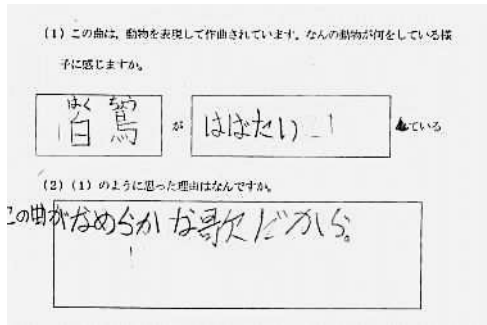 (1)この曲は、動物を表現して作曲されています。なんの動物が何をしている様
子に感じますか。
はくちょう
白鳥 が はばたい ている
(2)(1)のように思った理由はなんですか。
この曲がなめらかな歌だから。